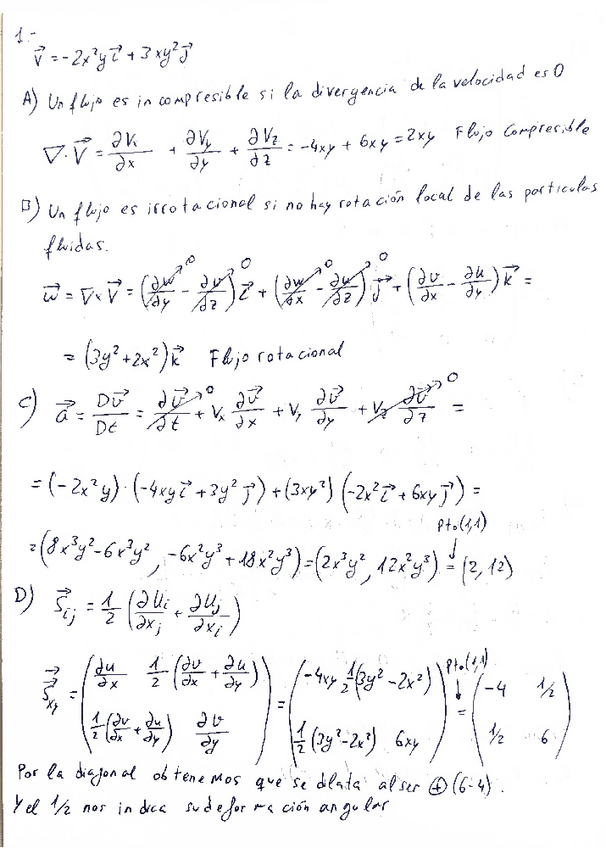 1.-
v⃗ = -2x²y i⃗ + 3xy² j⃗
A) Un flujo es incompresible si la divergencia de la velocidad es 0
∇·V⃗ = ∂Vx/∂x + ∂Vy/∂y + ∂Vz/∂z = -4xy + 6xy = 2xy Flujo Compresible
B) Un flujo es irrotacional si no hay rotación local de las particulas
fluidas.
w⃗ = ∇×V⃗ = (∂w/∂y→0 - ∂v/∂z→0) i⃗ + (∂w/∂x→0 - ∂u/∂z→0) j⃗ + (∂v/∂x - ∂u/∂y) k⃗ =
= (3y² + 2x²) k⃗ Flujo rotacional
C) a⃗ = Dv⃗/Dt = ∂v⃗/∂t→0 + Vx ∂v⃗/∂x + Vy ∂v⃗/∂y + Vz ∂v⃗/∂z→0 =
= (-2x²y)·(-4xy i⃗ + 3y² j⃗) + (3xy²)(-2x² i⃗ + 6xy j⃗) =
Pto(1,1)
= (8x³y² - 6x³y², -6x²y³ + 18x²y³) = (2x³y², 12x²y³) ↓= (2, 12)
D) S⃗ij = 1/2 (∂Ui/∂xj + ∂Uj/∂xi)
Pto(1,1)
S⃗xy = (∂u/∂x 1/2(∂v/∂x + ∂u/∂y) ; 1/2(∂v/∂x + ∂u/∂y) ∂v/∂y) = (-4xy 1/2(3y² - 2x²) ; 1/2(3y² - 2x²) 6xy) ↓= (-4 1/2 ; 1/2 6)
Por la diagonal obtenemos que se dilata al ser ⊕ (6-4).
Y el 1/2 nos indica su deformación angular